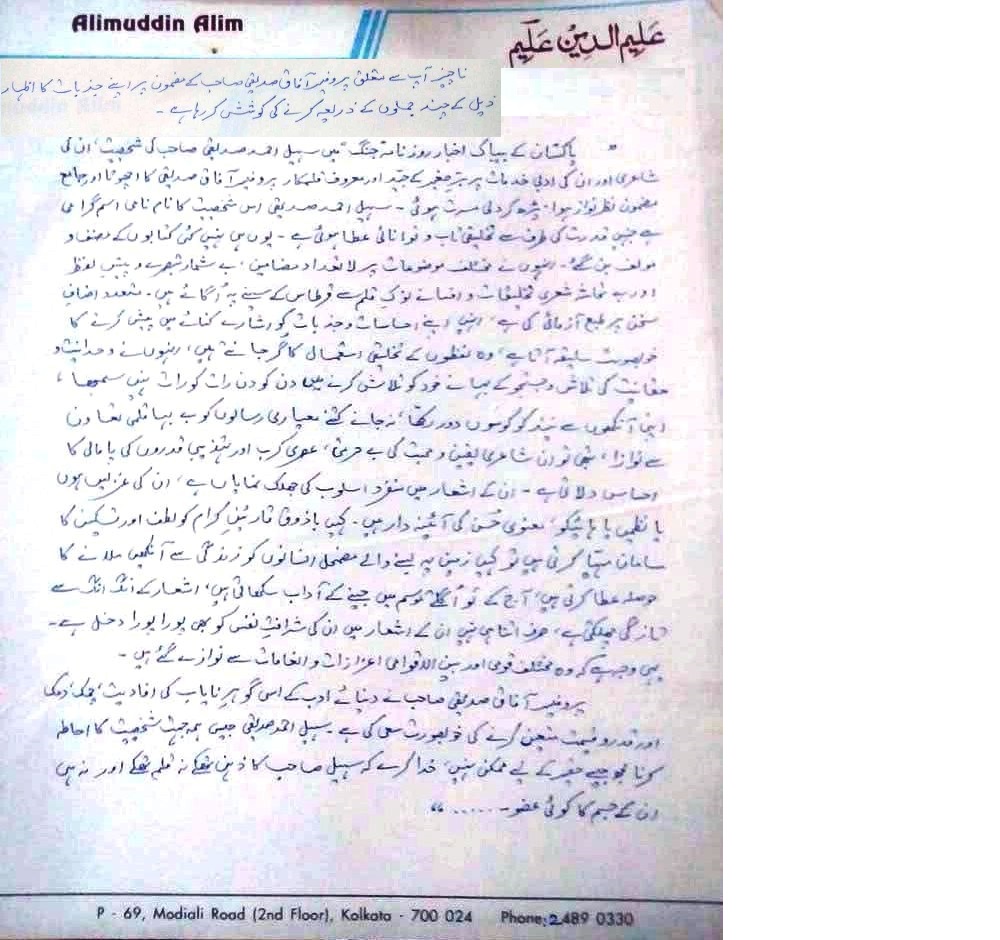 Alimuddin Alim
علیم الدین علیم
ناچیز آپ سے متعلق پروفیسر آفاق صدیقی صاحب کے مضمون پر اپنے جذبات کا اظہار
ذیل کے چند جملوں کے ذریعہ کرنے کی کوشش کر رہا ہے ۔
" پاکستان کے بیباک اخبار روزنامہ جنگ میں سہیل احمد صدیقی صاحب کی شخصیت، ان کی
شاعری اور ان کی ادبی خدمات پر برصغیر کے جید اور معروف قلمکار پروفیسر آفاق صدیقی کا اچھوتا اور جامع
مضمون نظر نواز ہوا۔ پڑھ کر دلی مسرت ہوئی ۔ سہیل احمد صدیقی اس شخصیت کا نام نامی اسم گرامی
ہے جسے قدرت کی طرف سے تخلیقی تاب و توانائی عطا ہوئی ہے ۔ یوں ہی نہیں کئی کتابوں کے مصنف و
مولف بن گئے۔ انہوں نے مختلف موضوعات پر لا تعداد مضامین، بے شمار تبصرے و پیش لفظ
اور بے تحاشہ شعری تخلیقات و افسانے نوک قلم سے قرطاس کے سینے پہ اُگائے ہیں۔ متعدد اصافِ
سخن پر طبع آزمائی کی ہے، انہیں اپنے احساسات و جذبات کو اشارے کنائے میں پیش کرنے کا
خوبصورت سلیقہ آتا ہے، وہ لفظوں کے تخلیقی استعمال کا گر جانتے ہیں، انہوں نے وحدانیت و
حقانیت کی تلاش و جستجو کے بہانے خود کو تلاش کرنے میں دن کو دن رات کو رات نہیں سمجھا ،
اپنی آنکھوں سے نیند کو کوسوں دور رکھا، نہ جانے کتنے معیاری رسالوں کو بے بہا قلمی تعاون
سے نوازا، تبھی تو ان شاعری یقین و محبت کی بے حرمتی، عصری کرب اور تہذیبی قدروں کی پامالی کا
احساس دلاتی ہے ۔ ان کے اشعار میں منفرد اسلوب کی جھلک نمایاں ہے، ان کی غزلیں ہوں
یا نظمیں یا ہائیکو، معنوی حسن کی آئینہ دار ہیں۔ کہیں باذوق قارئین کرام کو لطف اور تسکین کا
سامان مہیا کرتی ہیں تو کہیں زمین پہ بسنے والے مضمحل انسانوں کو زندگی سے آنکھیں ملانے کا
حوصلہ عطا کرتی ہیں، آج کے موسم میں جینے کے آداب سکھاتی ہیں، اشعار کے انگ انگ سے
تازگی جھلکتی ہے، صرف اتنا ہی نہیں ان کے اشعار میں ان کی شرافتِ نفس کو بھی پورا پورا دخل ہے۔
یہی وجہ ہے کہ وہ مختلف قومی اور بین الاقوامی اعزازات و انعامات سے نوازے گئے ہیں ۔
پروفیسر آفاق صدیقی صاحب نے دنیائے ادب کے اس گوہرِ نایاب کی افادیت، چمک دمک
اور قدر و قیمت متعین کرنے کی خوبصورت سعی کی ہے ۔ سہیل احمد صدیقی جیسی ہمہ جہت شخصیت کا احاطہ
کرنا مجھ جیسے حقیر کے لیے ممکن نہیں، خدا کرے کہ سہیل صاحب کا ذہن تھکے نہ قلم تھکے اور نہ ہی
ان کے جسم کا کوئی عضو ...... "
P - 69, Modiali Road (2nd Floor), Kolkata - 700 024 Phone: 2489 0330